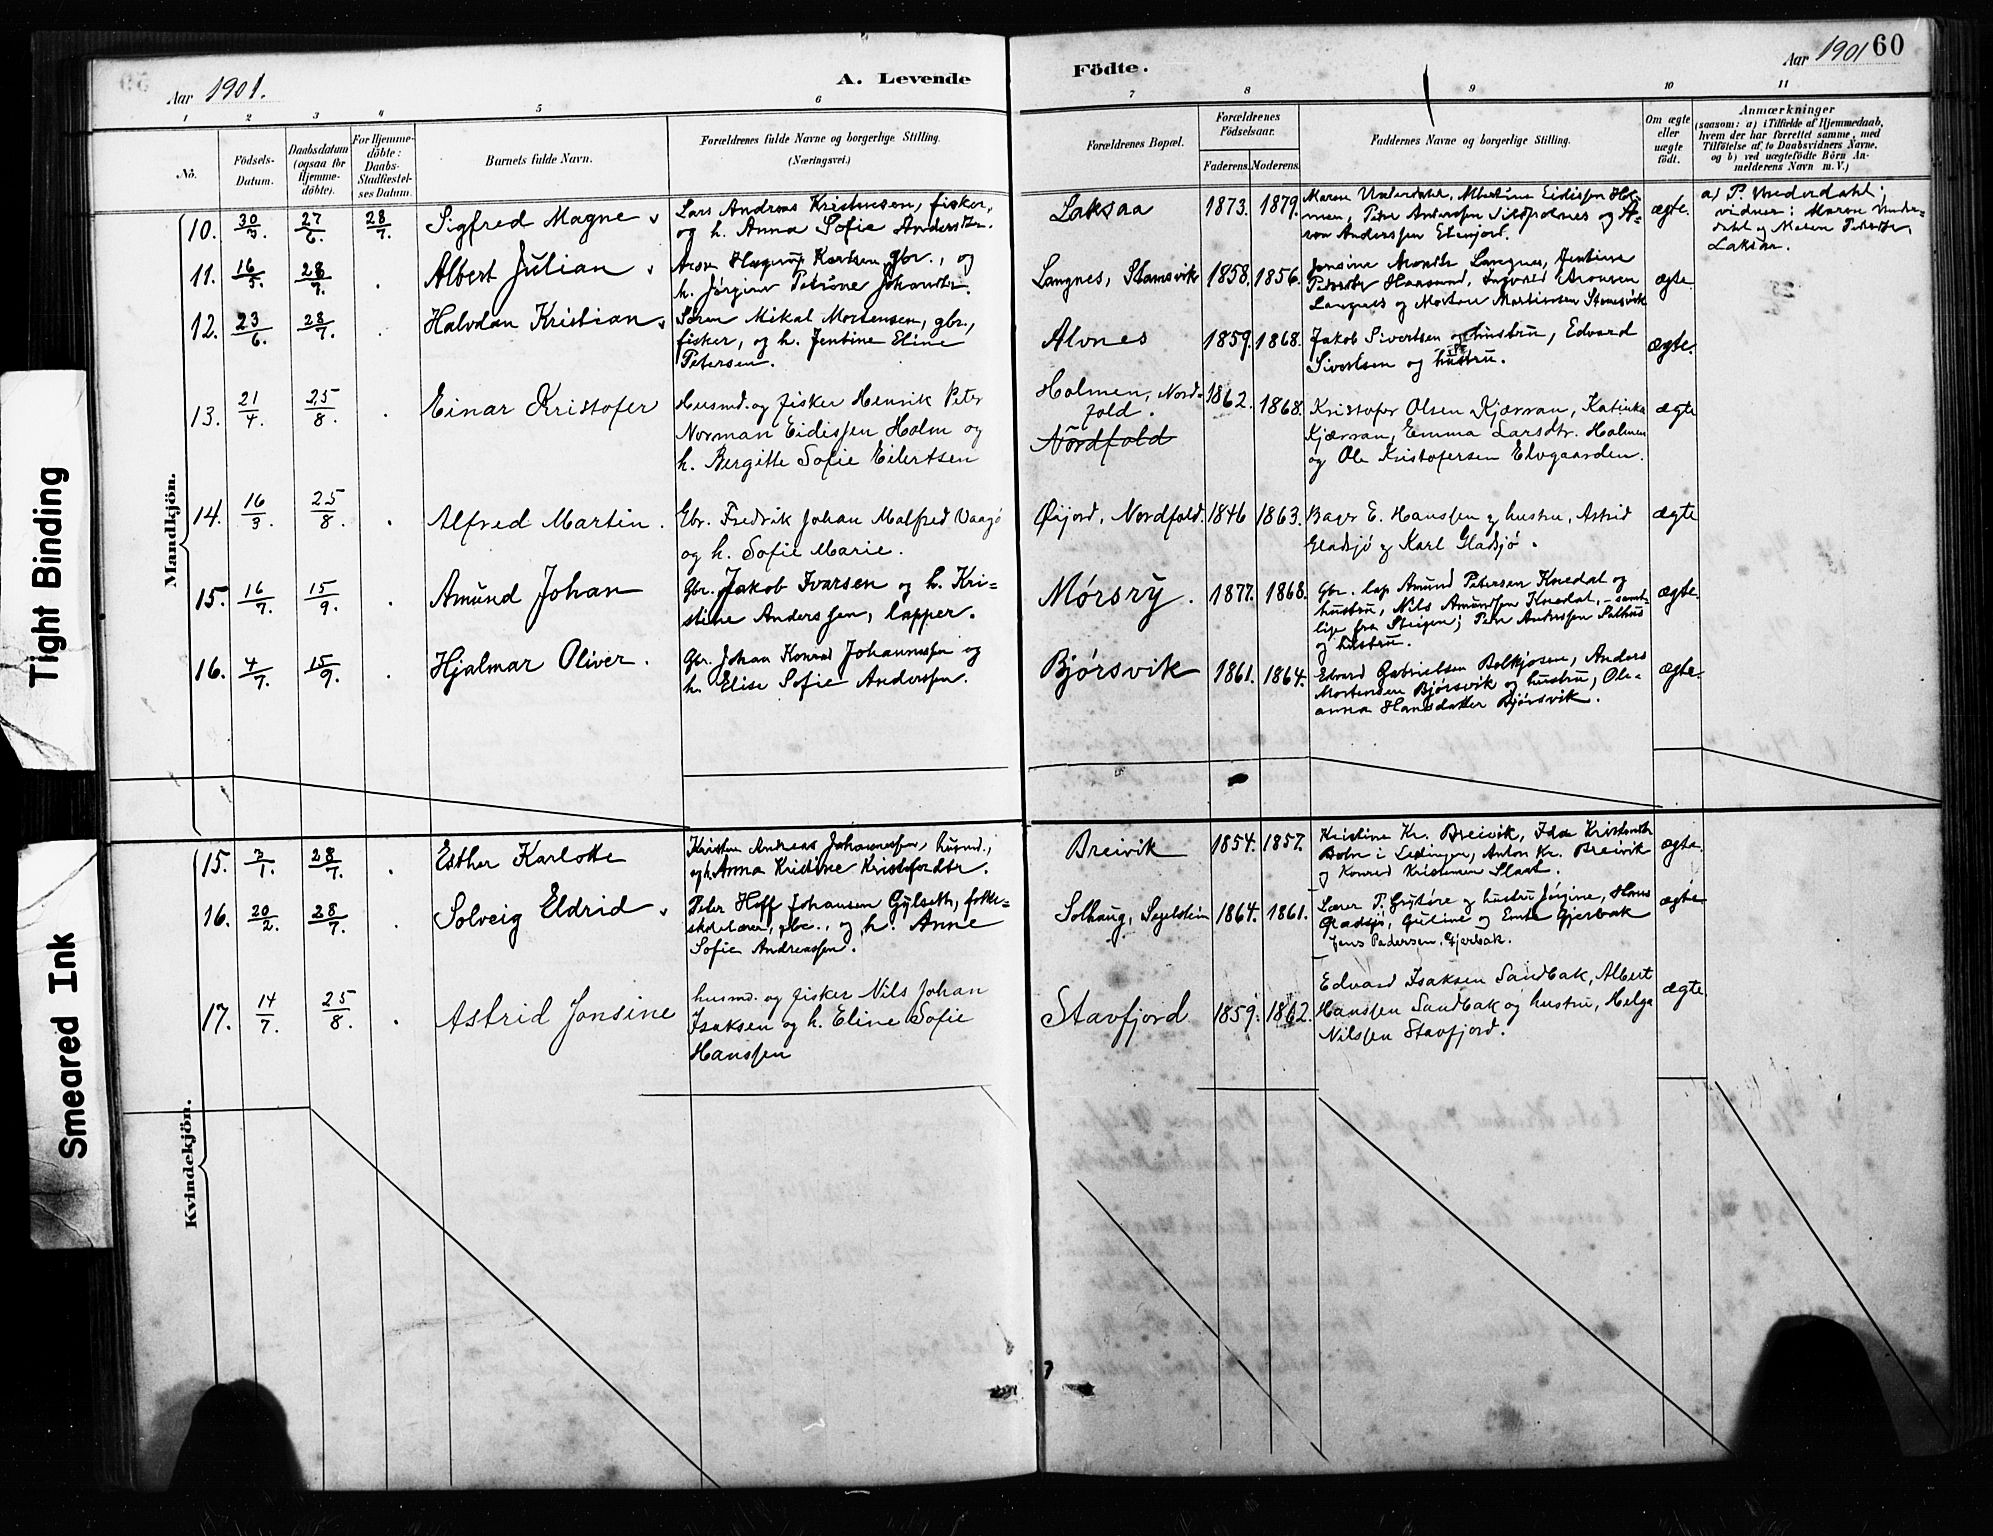 Aar 1901.
A. Levende
Födte.
Aar 1901
60
1 2 3 4 5 6 7 8 9 10 11
No.
Födsels-
Datum.
Daabsdatum
(ogsaa for
Hjemme-
döbte).
For Hjemme-
döbte:
Daabs-
Stadfæstel-
ses Datum.
Barnets fulde Navn.
Forældrenes fulde Navne og borgerlige Stilling.
(Næringsvei.)
Forældrenes Bopæl.
Forældrenes
Födselsaar.
Faderens. Moderens.
Faddernes Navne og borgerlige Stilling.
Om ægte
eller
uægte
födt.
Anmærkninger
(saasom: a) i Tilfælde af Hjemmedaab,
hvem der har forrettet samme, med
Tilföielse af to Daabsvidners Navne,
og b) ved uægtefödte Börn An-
melderens Navn m. V.)
Mandkjön.
10. 30/3 27/6. 28/7. Sigfred Magne
Lars Andreas Kristensen, fisker,
og h. Anna Sofie Andersdtr.
Laksaa 1873. 1879.
Maren Underdahl, Albertine Eidissen Hol-
men, Petre Anderssen Sildpolnes og A-
ron Anderssen
ægte.
a) P. Underdahl;
vidner: Maren Under-
dahl og Maren
Laksaa.
11. 16/5. 28/7. Albert Julian
Aron Hagerup Karlsen, gbr., og
h. Jørgine Petrine Johansdtr.
Langnes, Stamsvik 1858. 1856.
Jonsine Langnes, Jentine
Pedersdtr Ingvald Aronsen
Langnes og Morten Martinsen Stamsvik
ægte.
12. 23/6. 28/7. Halvdan Kristian
Søren Mikal Mortensen, gbr.,
fisker, og h. Jentine Eline
Petersen.
Alvnes 1859. 1868.
Jakob Sivertsen og hustru, Edvard
Sivertsen og hustru.
ægte.
13. 21/4. 25/8. Einar Kristofer
Husmd. og fisker Henrik Peter
Norman Eidissen Holm og
h. Bergitte Sofie Eilertsen
Holmen, Nord-
fold.
Nordfold
1862. 1868.
Kristofer Olsen Kjærran, Katinka
Kjærran, Emma Larsdtr. Holmen
og Ole Kristofersen Elvgaarden.
ægte
14. 16/3. 25/8. Alfred Martin.
Gbr. Fredrik Johan Malfred Vaagø
og h. Sofie Marie.
Øijord, Nordfold. 1846 1863.
Bager E. Hanssen og hustru, Astrid
Gladsjø og Karl Gladsjø.
ægte
15. 16/7. 15/9. Amund Johan
Gbr. Jakob Ivarsen og h. Kri-
stine Anderssen, lapper.
Mørsry. 1877. 1868.
Gbr. lap Amund Petersen Knedal og
hustru, Nils Amundsen Knedal, - samt-
lige fra Steigen; Petre Anderssen
og hustru.
ægte.
16. 4/7. 15/9. Hjalmar Oliver.
Gbr. Johan Konrad Johannessen og
h. Elise Sofie Anderssen.
Bjørsvik 1861. 1864.
Edvard Gabrielsen Bolkjosen, Anders
Mortensen Bjørsvik og hustru, Ole-
anna Hansdatter Bjørsvik.
ægte.
Kvindekjön.
15. 3/1. 28/7. Esther Karlotte
Kristen Andreas Johannessen, husmd.,
og h. Anna Kristine Kristofersdtr.
Breivik 1854. 1857.
Kristine Kr. Breivik, Ida Kristensdtr
i Lødingen, Anton Kr. Breivik
og Konrad Kristensen Slaat.
ægte.
16. 20/2. 28/7. Solveig Eldrid
Peter Hoff Johansen Gylseth, folke-
skolelærer, gbr., og h. Anne
Sofie Andreassen.
Solhaug, Sagelstein 1864. 1861.
Lærer P. Grytøre og hustru Jørgine, Hans
Gladsjø, Guline og Emte Gjerbak
Jens Pedersen, Gjerbak.
ægte
17. 14/7. 25/8. Astrid Jonsine
husmd. og fisker Nils Johan
Isaksen og h. Eline Sofie
Hanssen
Stavfjord 1859. 1862.
Edvard Isaksen Sandbak, Albert
Hanssen Sandbak og hustru, Helga
Nilssen Stavfjord.
ægte
Tight Binding
Smeared Ink